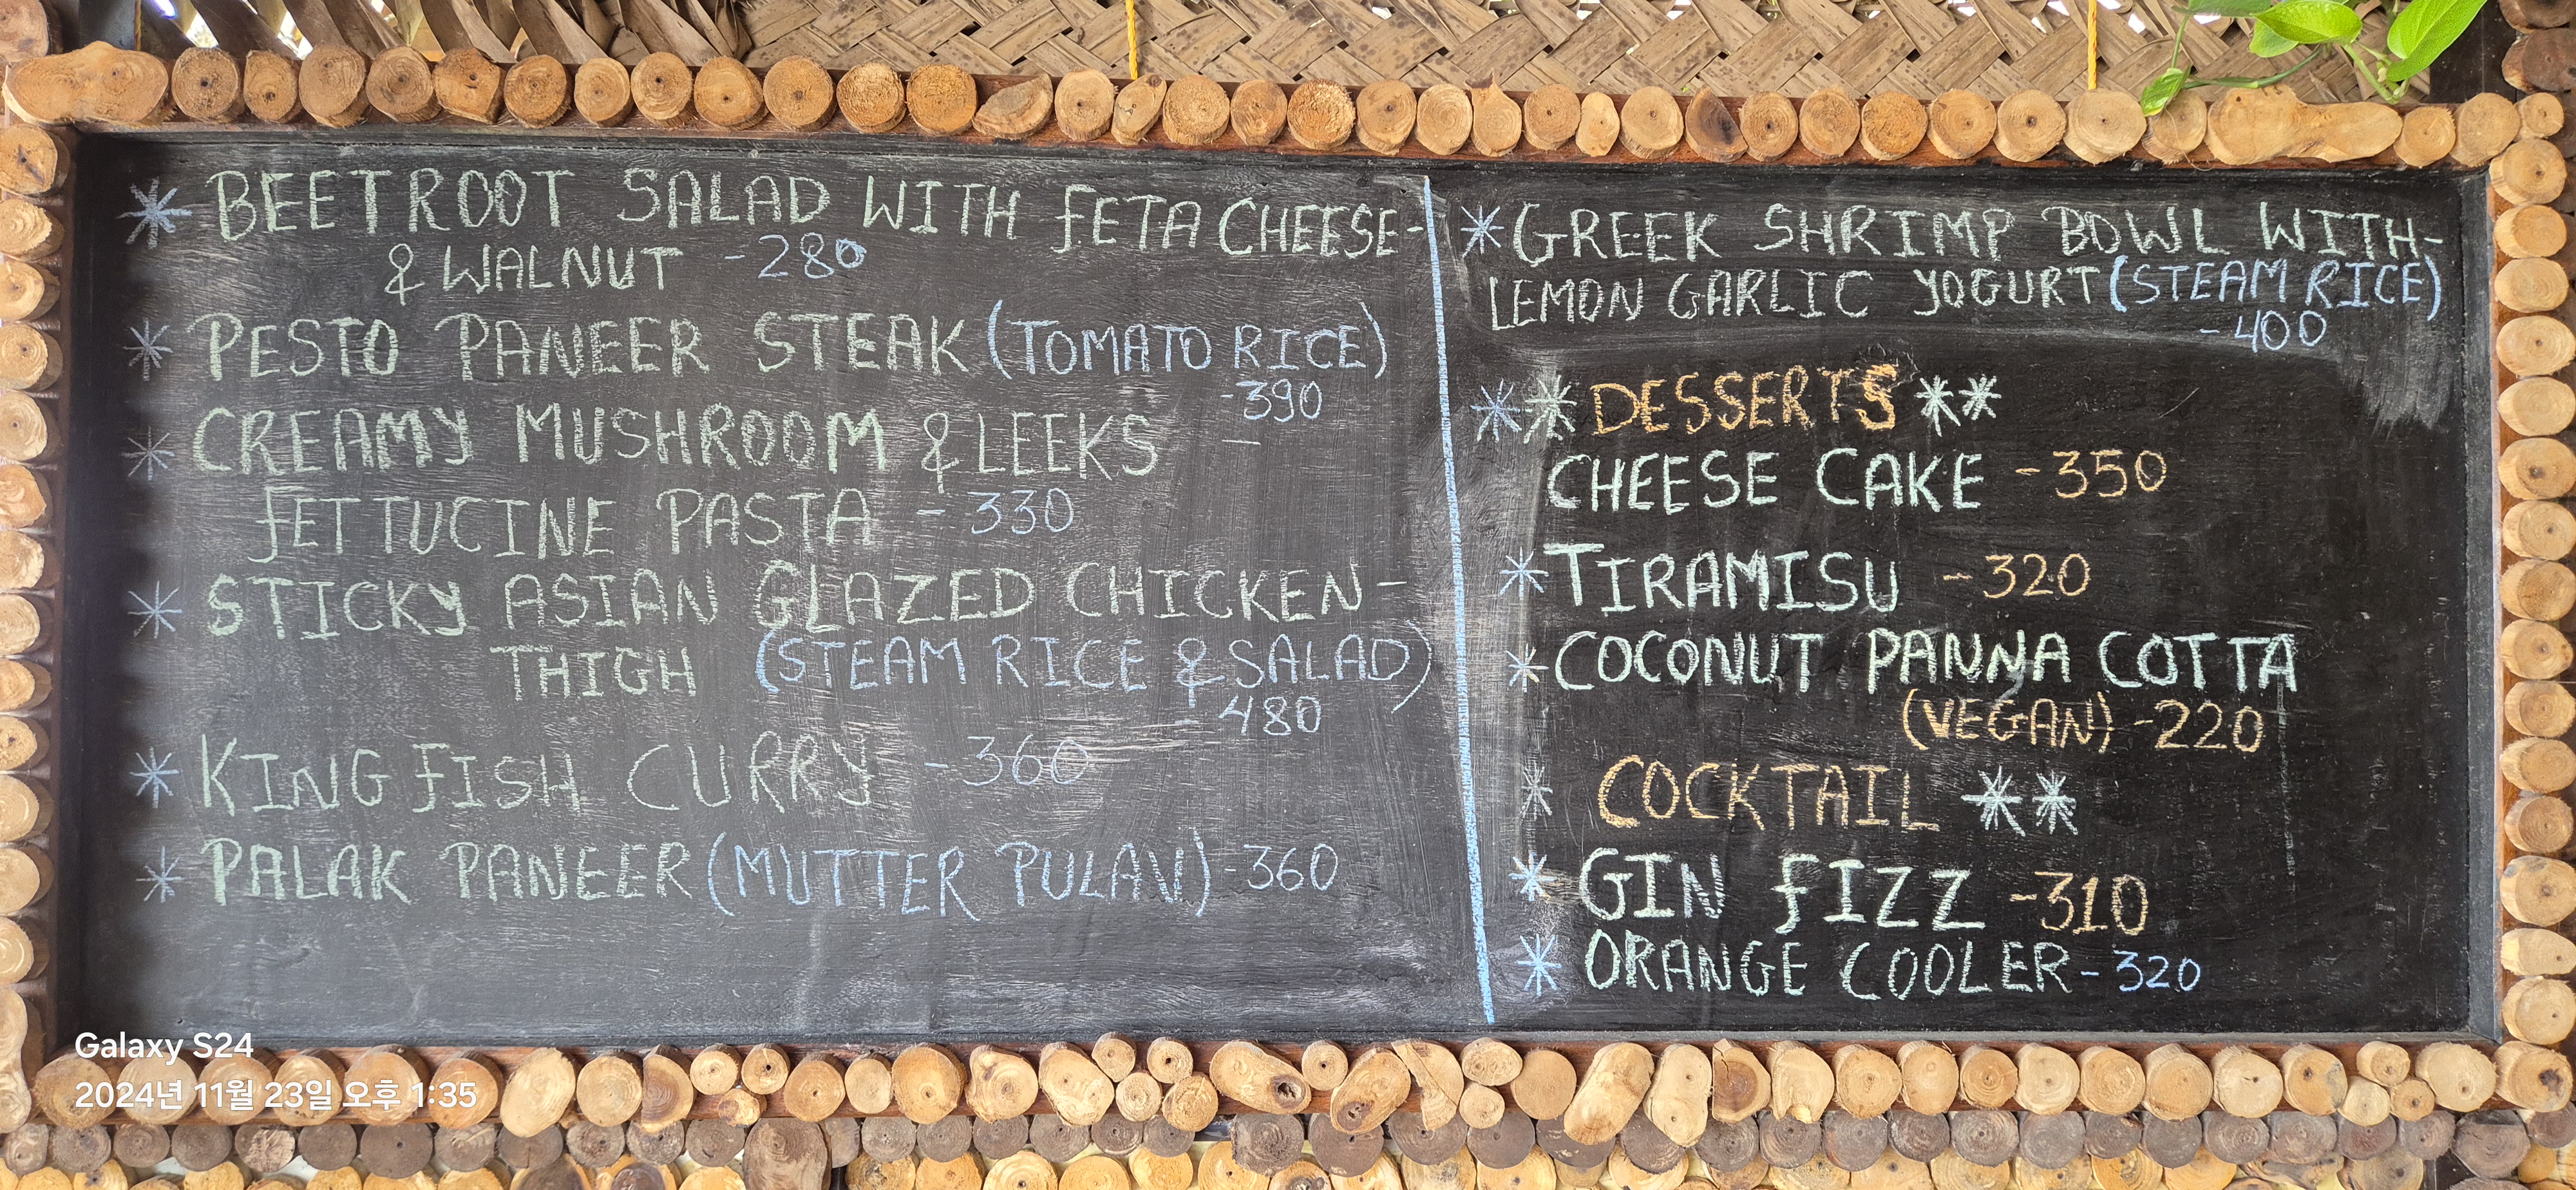 * BEETROOT SALAD WITH FETA CHEESE-
& WALNUT -280
* PESTO PANEER STEAK (TOMATO RICE)
-390
* CREAMY MUSHROOM & LEEKS —
FETTUCINE PASTA - 330
* STICKY ASIAN GLAZED CHICKEN-
THIGH (STEAM RICE & SALAD)
- 480
* KING FISH CURRY -360
* PALAK PANEER (MUTTER PULAV) -360
* GREEK SHRIMP BOWL WITH-
LEMON GARLIC YOGURT (STEAM RICE)
-400
** DESSERTS **
CHEESE CAKE -350
* TIRAMISU -320
* COCONUT PANNA COTTA
(VEGAN) -220
* COCKTAIL **
* GIN FIZZ -310
* ORANGE COOLER - 320
Galaxy S24
2024년 11월 23일 오후 1:35